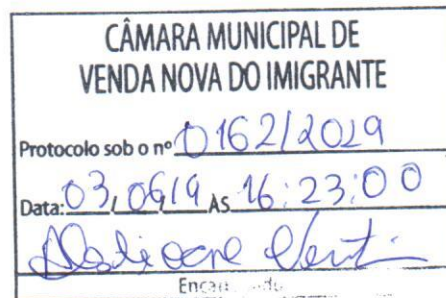 CÂMARA MUNICIPAL DE
VENDA NOVA DO IMIGRANTE
Protocolo sob o nº 0162/2019
Data: 03, 06, 19 ÀS 16:23:00